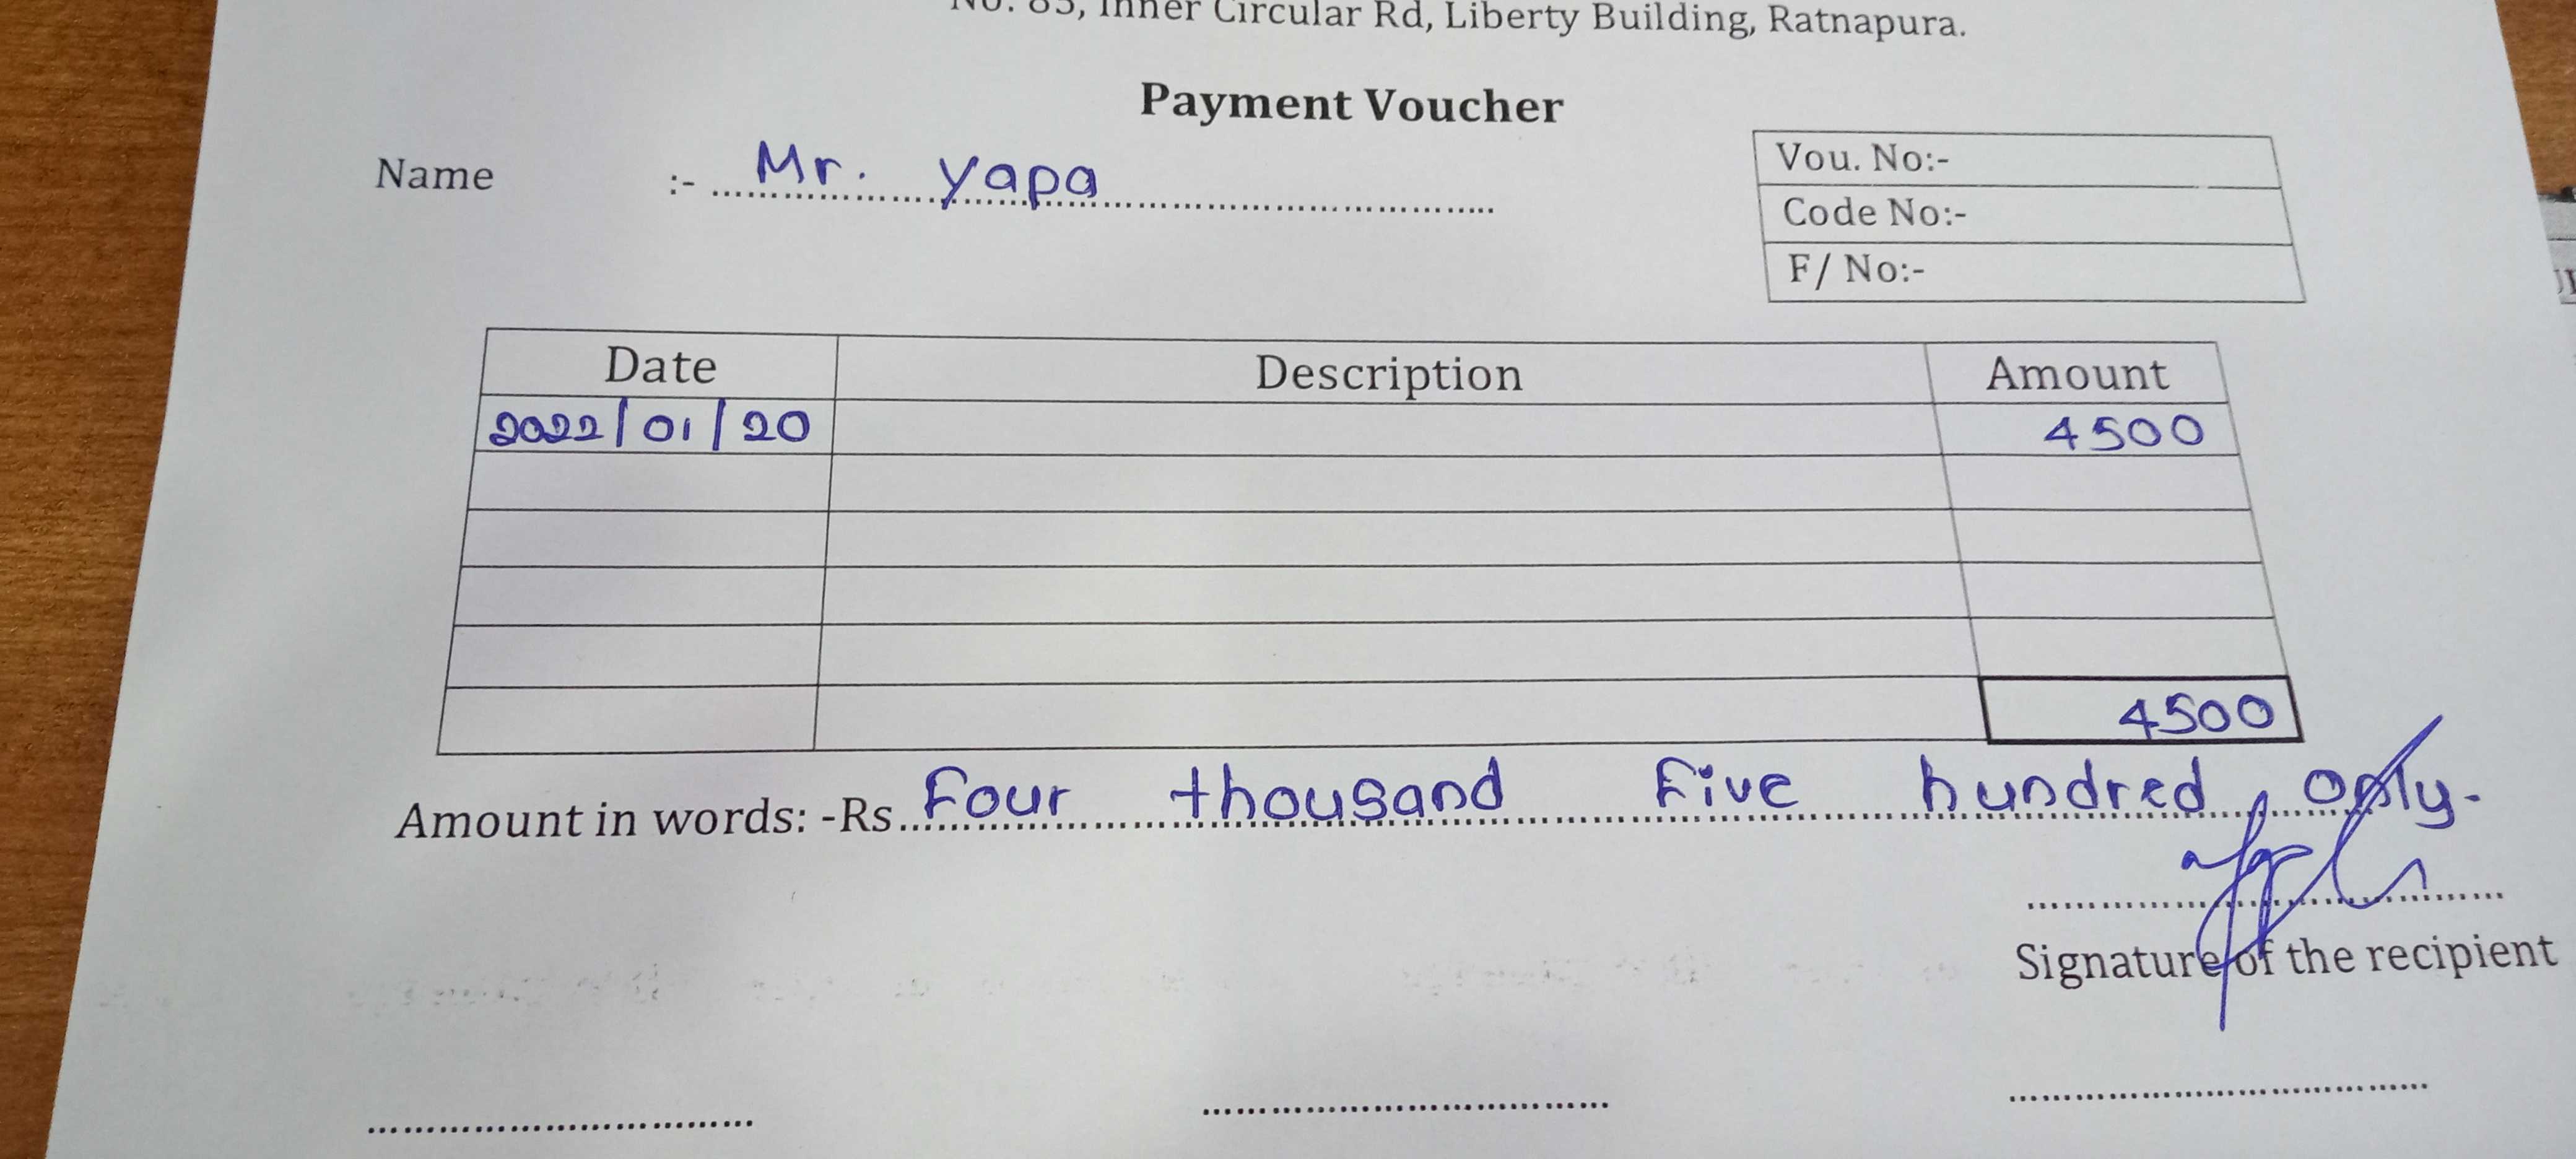 No. 83, Inner Circular Rd, Liberty Building, Ratnapura.
Payment Voucher
Name :- Mr. yapa
Vou. No:-
Code No:-
F/ No:-
Date Description Amount
2022/01/20 4500
4500
Amount in words: -Rs Four thousand Five hundred only.
Signature of the recipient